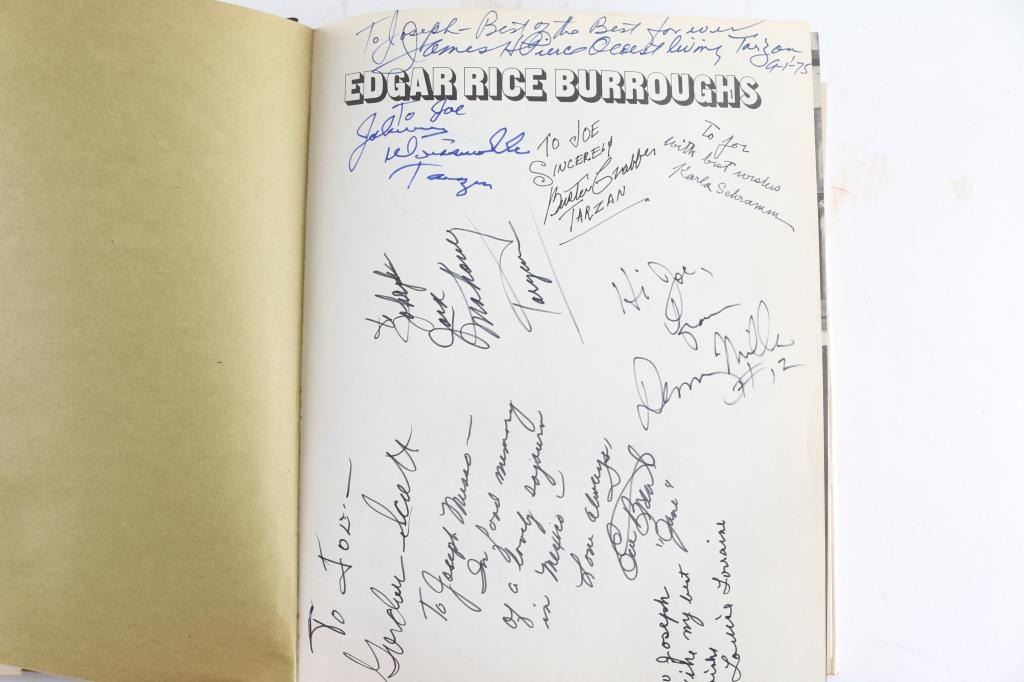 To Joseph - Best of the Best for ever
James H Pierce Oldest living Tarzan
9-1-75
EDGAR RICE BURROUGHS
To Joe
Johnny
Weissmuller
Tarzan
TO JOE
SINCERELY
Buster Crabbe
TARZAN
To Joe
with best wishes
Karla Schramm
To Joseph
Jock
Mahoney
Tarzan
Hi Joe,
From
Denny Miller
#12
To Joe -
Gordon Scott
To Joseph Musso -
In fond memory
of a lovely sojourn
in Mexico
Love always,
"Jane"
To Joseph
my best
Louise Lorraine